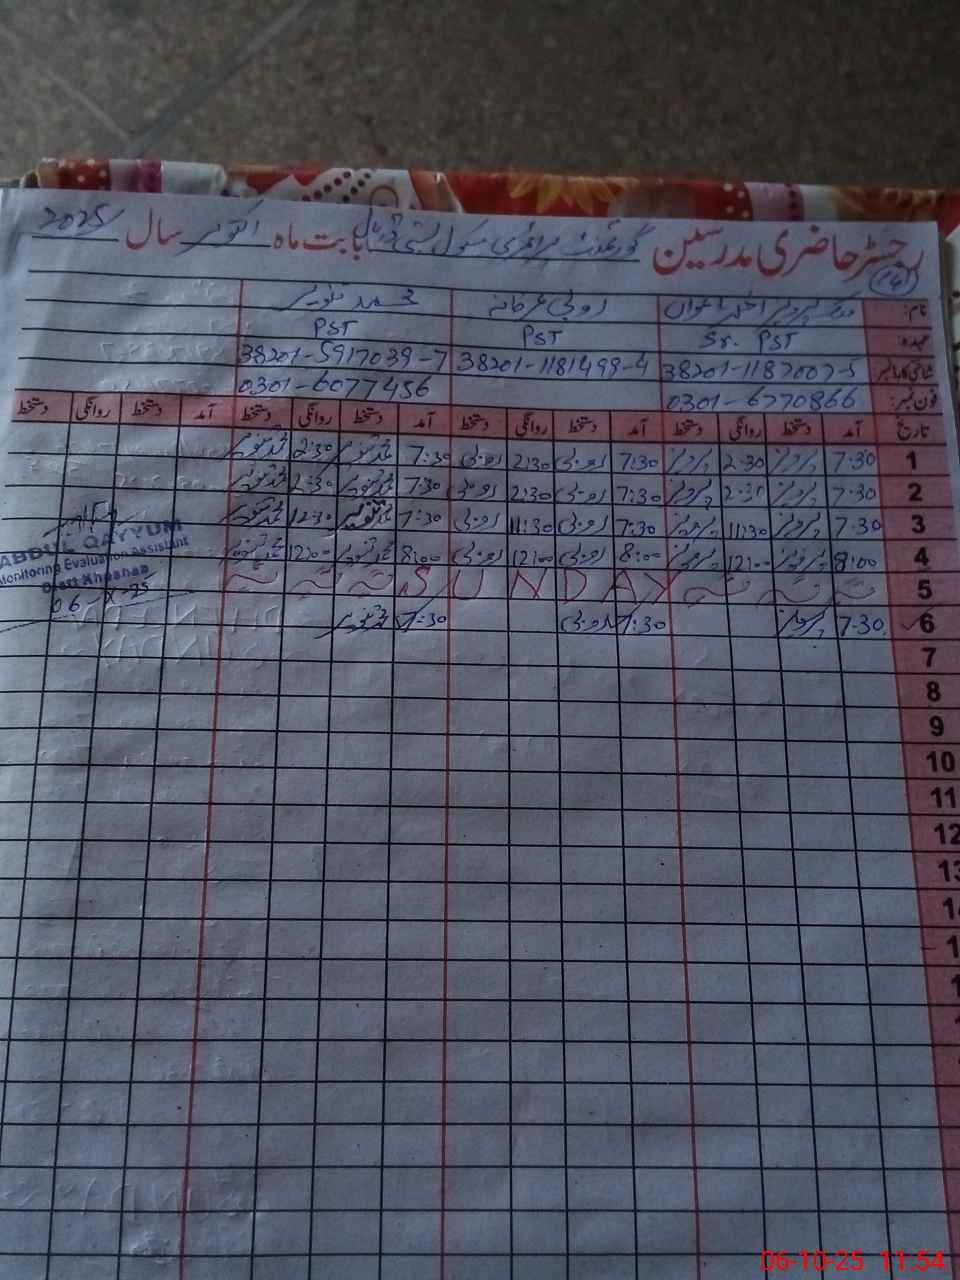 رجسٹر حاضری مدرسین گورنمنٹ پرائمری سکول بستی بابت ماہ اکتوبر سال 2025
14
نام: اختر اعوان روبی عرفانہ محمد تنویر
عہدہ: Sr. PST PST PST
شناختی کارڈ نمبر 38201-1187007-5 38201-1181499-4 38201-5917039-7
فون نمبر: 0301-6770866 0301-6077456
تاریخ آمد دستخط روانگی دستخط آمد دستخط روانگی دستخط آمد دستخط روانگی دستخط آمد دستخط روانگی دستخط
1 7:30 پرویز 2:30 پرویز 7:30 روبی 2:30 روبی 7:30 محمد تنویر 2:30 محمد تنویر
2 7:30 پرویز 2:30 پرویز 7:30 روبی 2:30 روبی 7:30 محمد تنویر 2:30 محمد تنویر
3 7:30 پرویز 11:30 پرویز 7:30 روبی 11:30 روبی 7:30 محمد تنویر 12:30 محمد تنویر
4 8:00 پرویز 12:00 پرویز 8:00 روبی 12:00 روبی 8:00 محمد تنویر 12:00 محمد تنویر
5 SUNDAY
6 7:30 پرویز 7:30 روبی 7:30 محمد تنویر
ABDUL QAYYUM
Monitoring Evaluation Assistant
Distt Khoshab
06-X-25
7
8
9
10
11
12
13
06-10-25 11:54